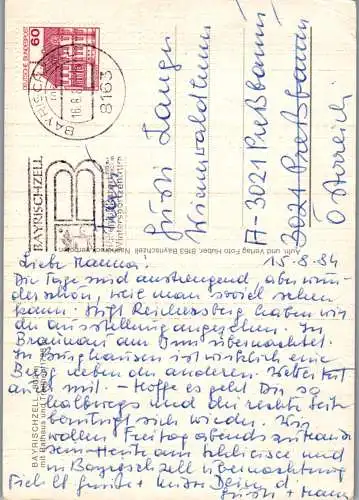 DEUTSCHE BUNDESPOST
60
BAYRISCHZELL
16.8.
8163
BAYRISCHZELL
Wintersportzentrum
Langer
Wienerwaldheim
A-3021 Preßbaum
3021 Preßbaum
Österreich
Aufn. und Verlag Foto Huber, 8163 Bayrischzell
BAYRISCHZELL
mit Rathaus und
15-8-84
Liebe Mamma!
Die Tage sind anstrengend, aber wun-
derschön, weil man soviel sehen
kann. Stift Reichersberg haben wir
die Ausstellung angesehen. In
Braunau am Inn übernachtet.
In Burghausen ist wirklich eine
Burg neben der anderen. Wetter ist
mit - Hoffe es geht Dir so
halbwegs und die rechte Seite
sich wieder. Wir
wollen Freitag abends zuhause
sein - Heute am Schliersee und
in Bayrischzell Übernachtung